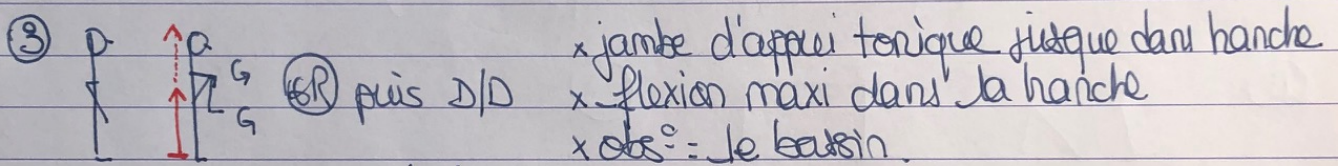 ③ G G 6R puis D/D
× jambe d'appui tonique jusque dans hanche
× flexion maxi dans la hanche
× obs° = le bassin.